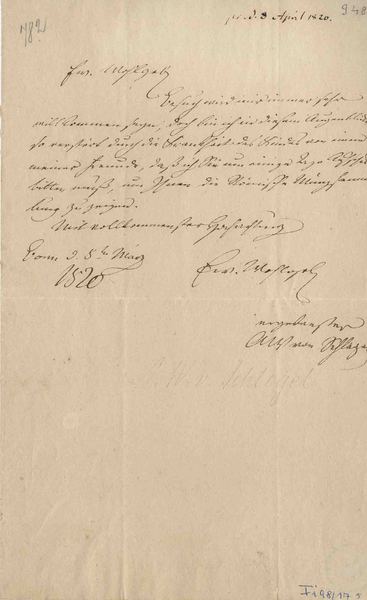 pr. d. 3 April 1820.
948
782
Ew. Wohlgeb
Besuch wird mir immer sehr
willkommen seyn, doch bin ich in diesem Augenblick
so verstört durch die Krankheit des Kindes von einem
meiner Freunde, daß ich Sie um einige Tage Aufschub
bitten muß, um Ihnen die Römische Münzsamm
lung zu zeigen.
Mit vollkommenster Hochachtung
Bonn d. März
1820
Ew. Wohlgeb
ergebenster
AW von Schlegel
A. W. v. Schlegel